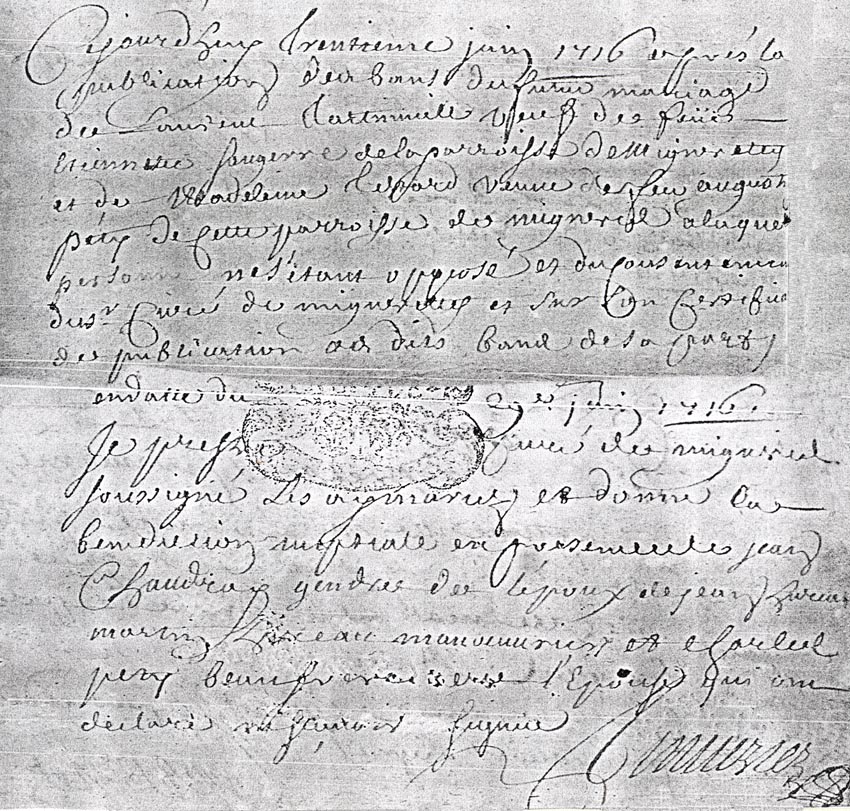 Cejourdhuy trentieme juin 1716 après la
publication des bans du futur mariage
de Laurent veuf de feüe
Etiennette de la parroisse de Migneretty
et de Madeleine Lepard veuve de feu august
petit de cette parroisse de mignereil a laque
personne n'es'étant opposé et du consentemen
dusr Curé de et sur son Certifica
de publication des dits bans de sa part
endatte du 29e juin 1716.
Je prest Curé de mignereil
soussigné Les ay mariez et donné la
benediction nuptiale en presence de jean
Chaudron gendre de l'époux de jean
martin manouvrier et charles
petit beaufrere de l'Epouse qui ont
declaré ne sçavoir signer